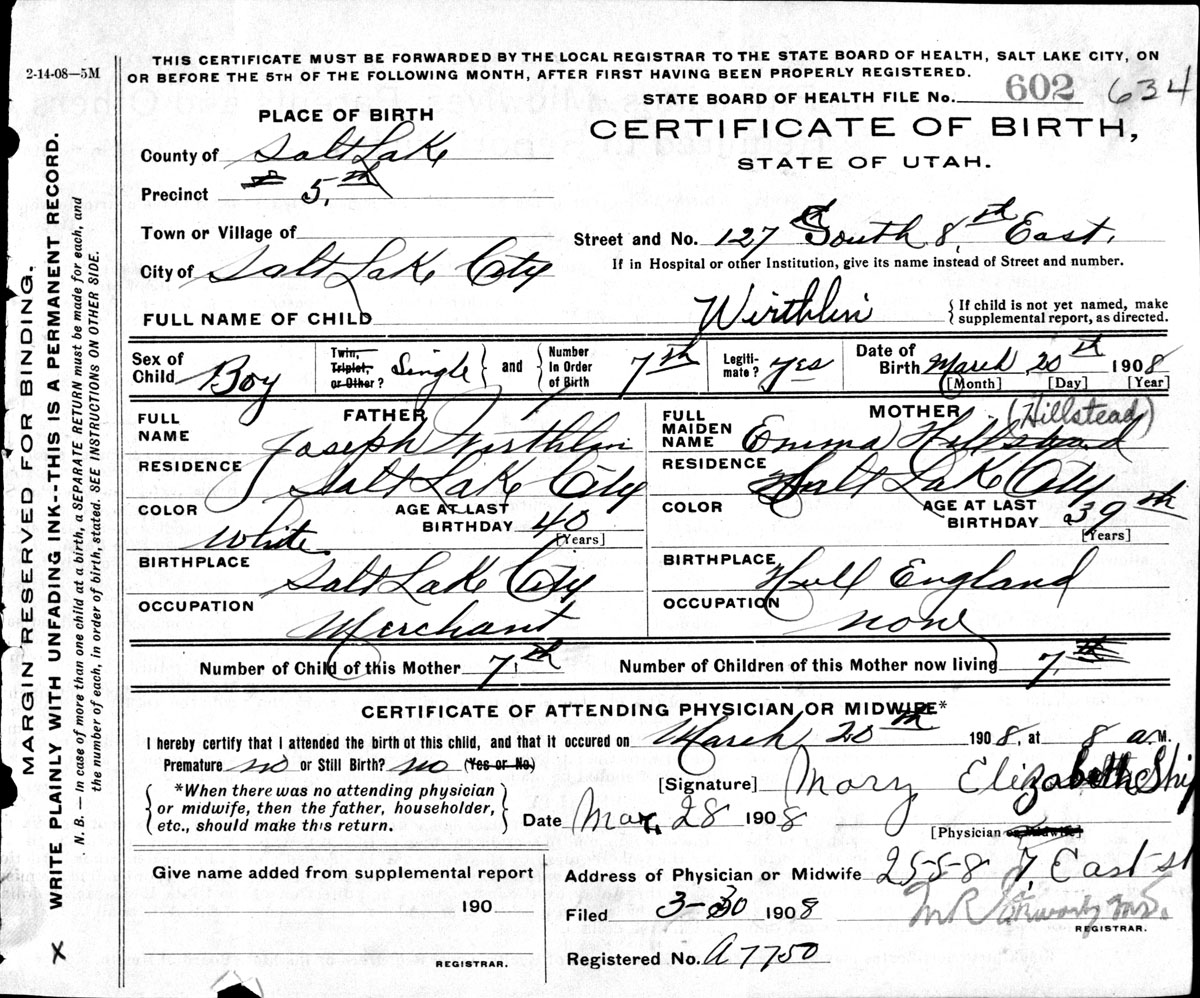 THIS CERTIFICATE MUST BE FORWARDED BY THE LOCAL REGISTRAR TO THE STATE BOARD OF HEALTH, SALT LAKE CITY, ON
OR BEFORE THE 5TH OF THE FOLLOWING MONTH, AFTER FIRST HAVING BEEN PROPERLY REGISTERED.
2-14-08—5M
STATE BOARD OF HEALTH FILE No. 602 634
PLACE OF BIRTH
CERTIFICATE OF BIRTH,
STATE OF UTAH.
County of Salt Lake
Precinct 5th
Town or Village of
Street and No. 127 South 8th East.
City of Salt Lake City
If in Hospital or other Institution, give its name instead of Street and number.
FULL NAME OF CHILD Wirthlin
{If child is not yet named, make
supplemental report, as directed.
Sex of Child Boy
Twin, Triplet, or Other? Single } and { Number in Order of Birth 7th
Legiti-mate? Yes
Date of Birth March 20th 1908
[Month] [Day] [Year]
FATHER
FULL NAME Joseph Wirthlin
RESIDENCE Salt Lake City
COLOR White
AGE AT LAST BIRTHDAY 40
[Years]
BIRTHPLACE Salt Lake City
OCCUPATION Merchant
MOTHER (Hillstead)
FULL MAIDEN NAME Emma Hillstead
RESIDENCE Salt Lake City
COLOR
AGE AT LAST BIRTHDAY 39th
[Years]
BIRTHPLACE Hull England
OCCUPATION none
Number of Child of this Mother 7th
Number of Children of this Mother now living 7
CERTIFICATE OF ATTENDING PHYSICIAN OR MIDWIFE*
I hereby certify that I attended the birth of this child, and that it occured on March 20th 1908, at 8 a.M.
Premature no or Still Birth? no (Yes or No)
[Signature] Mary Elizabeth Ship
{*When there was no attending physician
or midwife, then the father, householder,
etc., should make this return.}
Date Mar. 28 1908
[Physician or Midwife]
Give name added from supplemental report
190
REGISTRAR.
Address of Physician or Midwife 255-8 7 East st
Filed 3-30 1908
REGISTRAR.
Registered No. A7750
MARGIN RESERVED FOR BINDING.
WRITE PLAINLY WITH UNFADING INK--THIS IS A PERMANENT RECORD.
N. B.— In case of more than one child at a birth, a SEPARATE RETURN must be made for each, and
the number of each, in order of birth, stated. SEE INSTRUCTIONS ON OTHER SIDE.
X